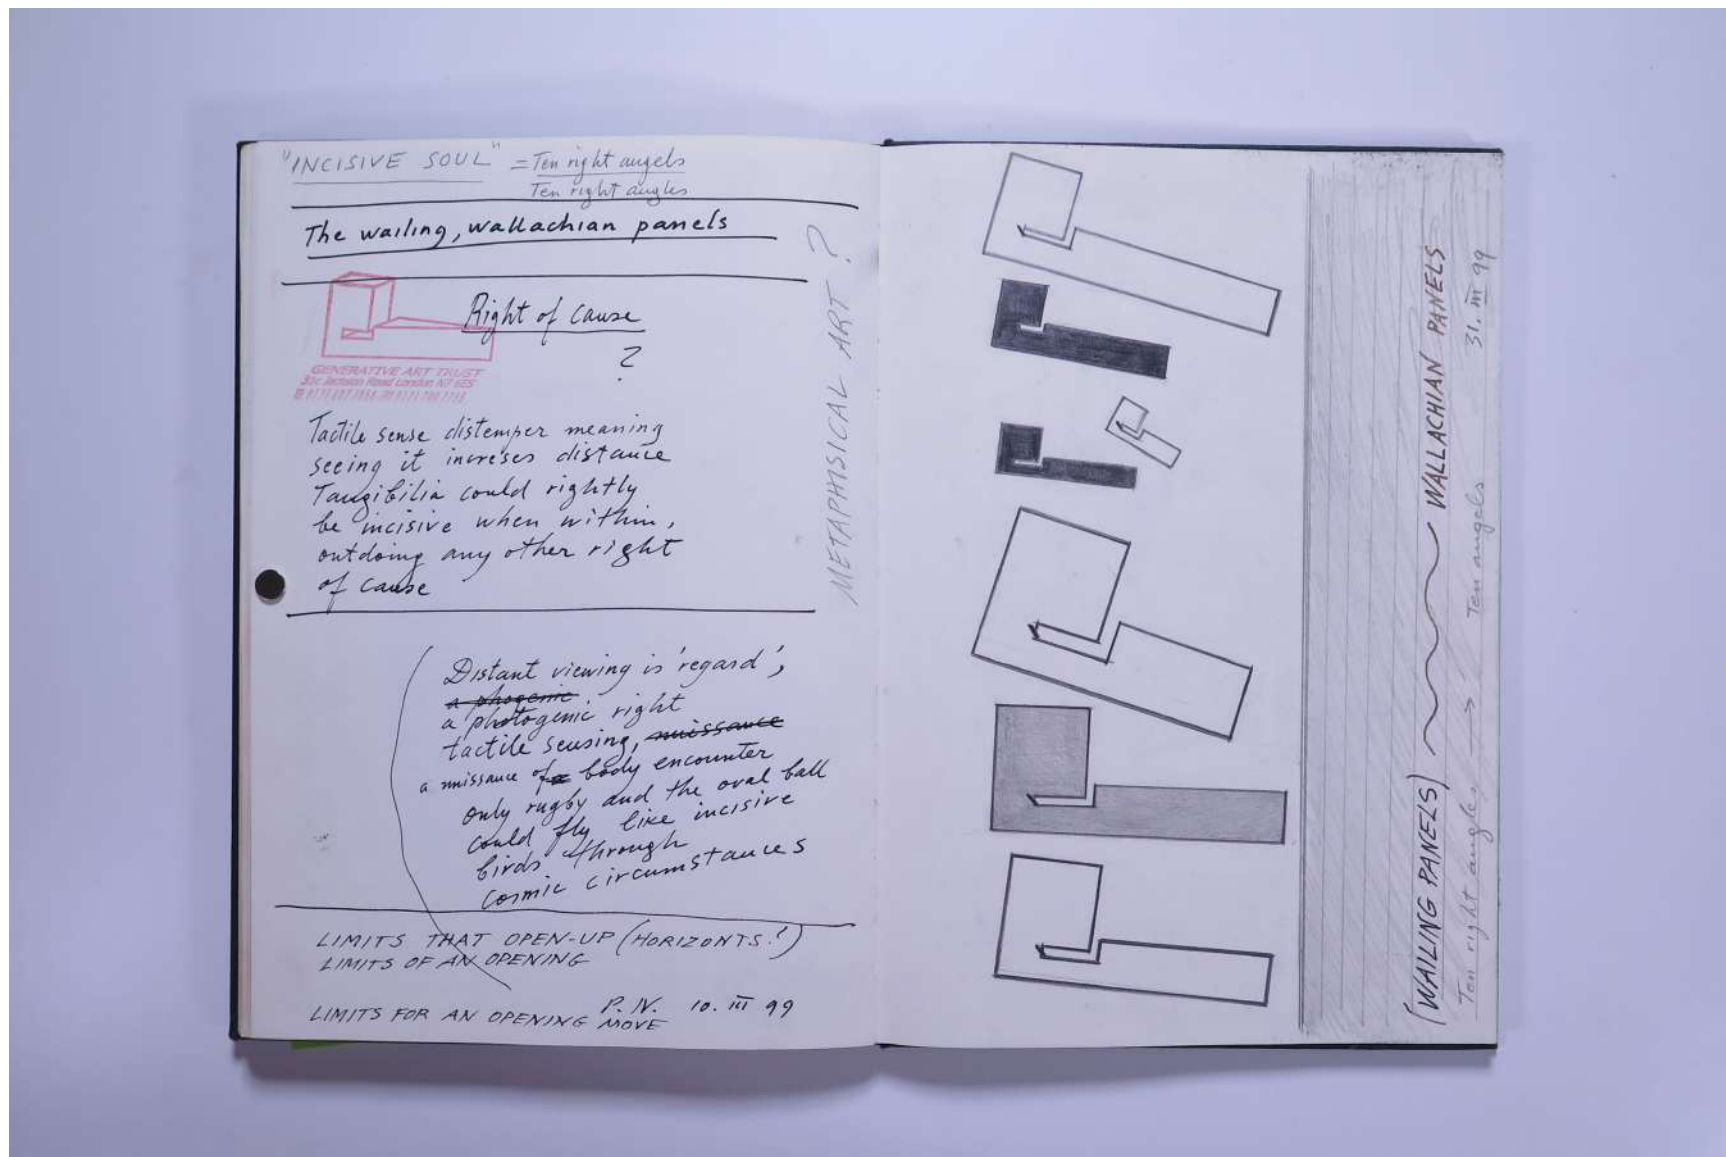 "INCISIVE SOUL" = Ten right angels
Ten right angles
The wailing, wallachian panels
Right of cause
?
GENERATIVE ART TRUST
Jackson Road London N7 6ES
Tactile sense distemper meaning
seeing it increses distance
Tangibilia could rightly
be incisive when within,
outdoing any other right
of cause
METAPHISICAL ART ?
Distant viewing is 'regard',
a phogenic
a photogenic right
tactile sensing, nuissance
a nuissance of body encounter
only rugby and the oval ball
could fly like incisive
birds through
cosmic circumstances
LIMITS THAT OPEN-UP (HORIZONTS!)
LIMITS OF AN OPENING
LIMITS FOR AN OPENING MOVE
P. N. 10. III 99
(WAILING PANELS) WALLACHIAN PANELS
Ten right angles → Ten angels 31. III 99